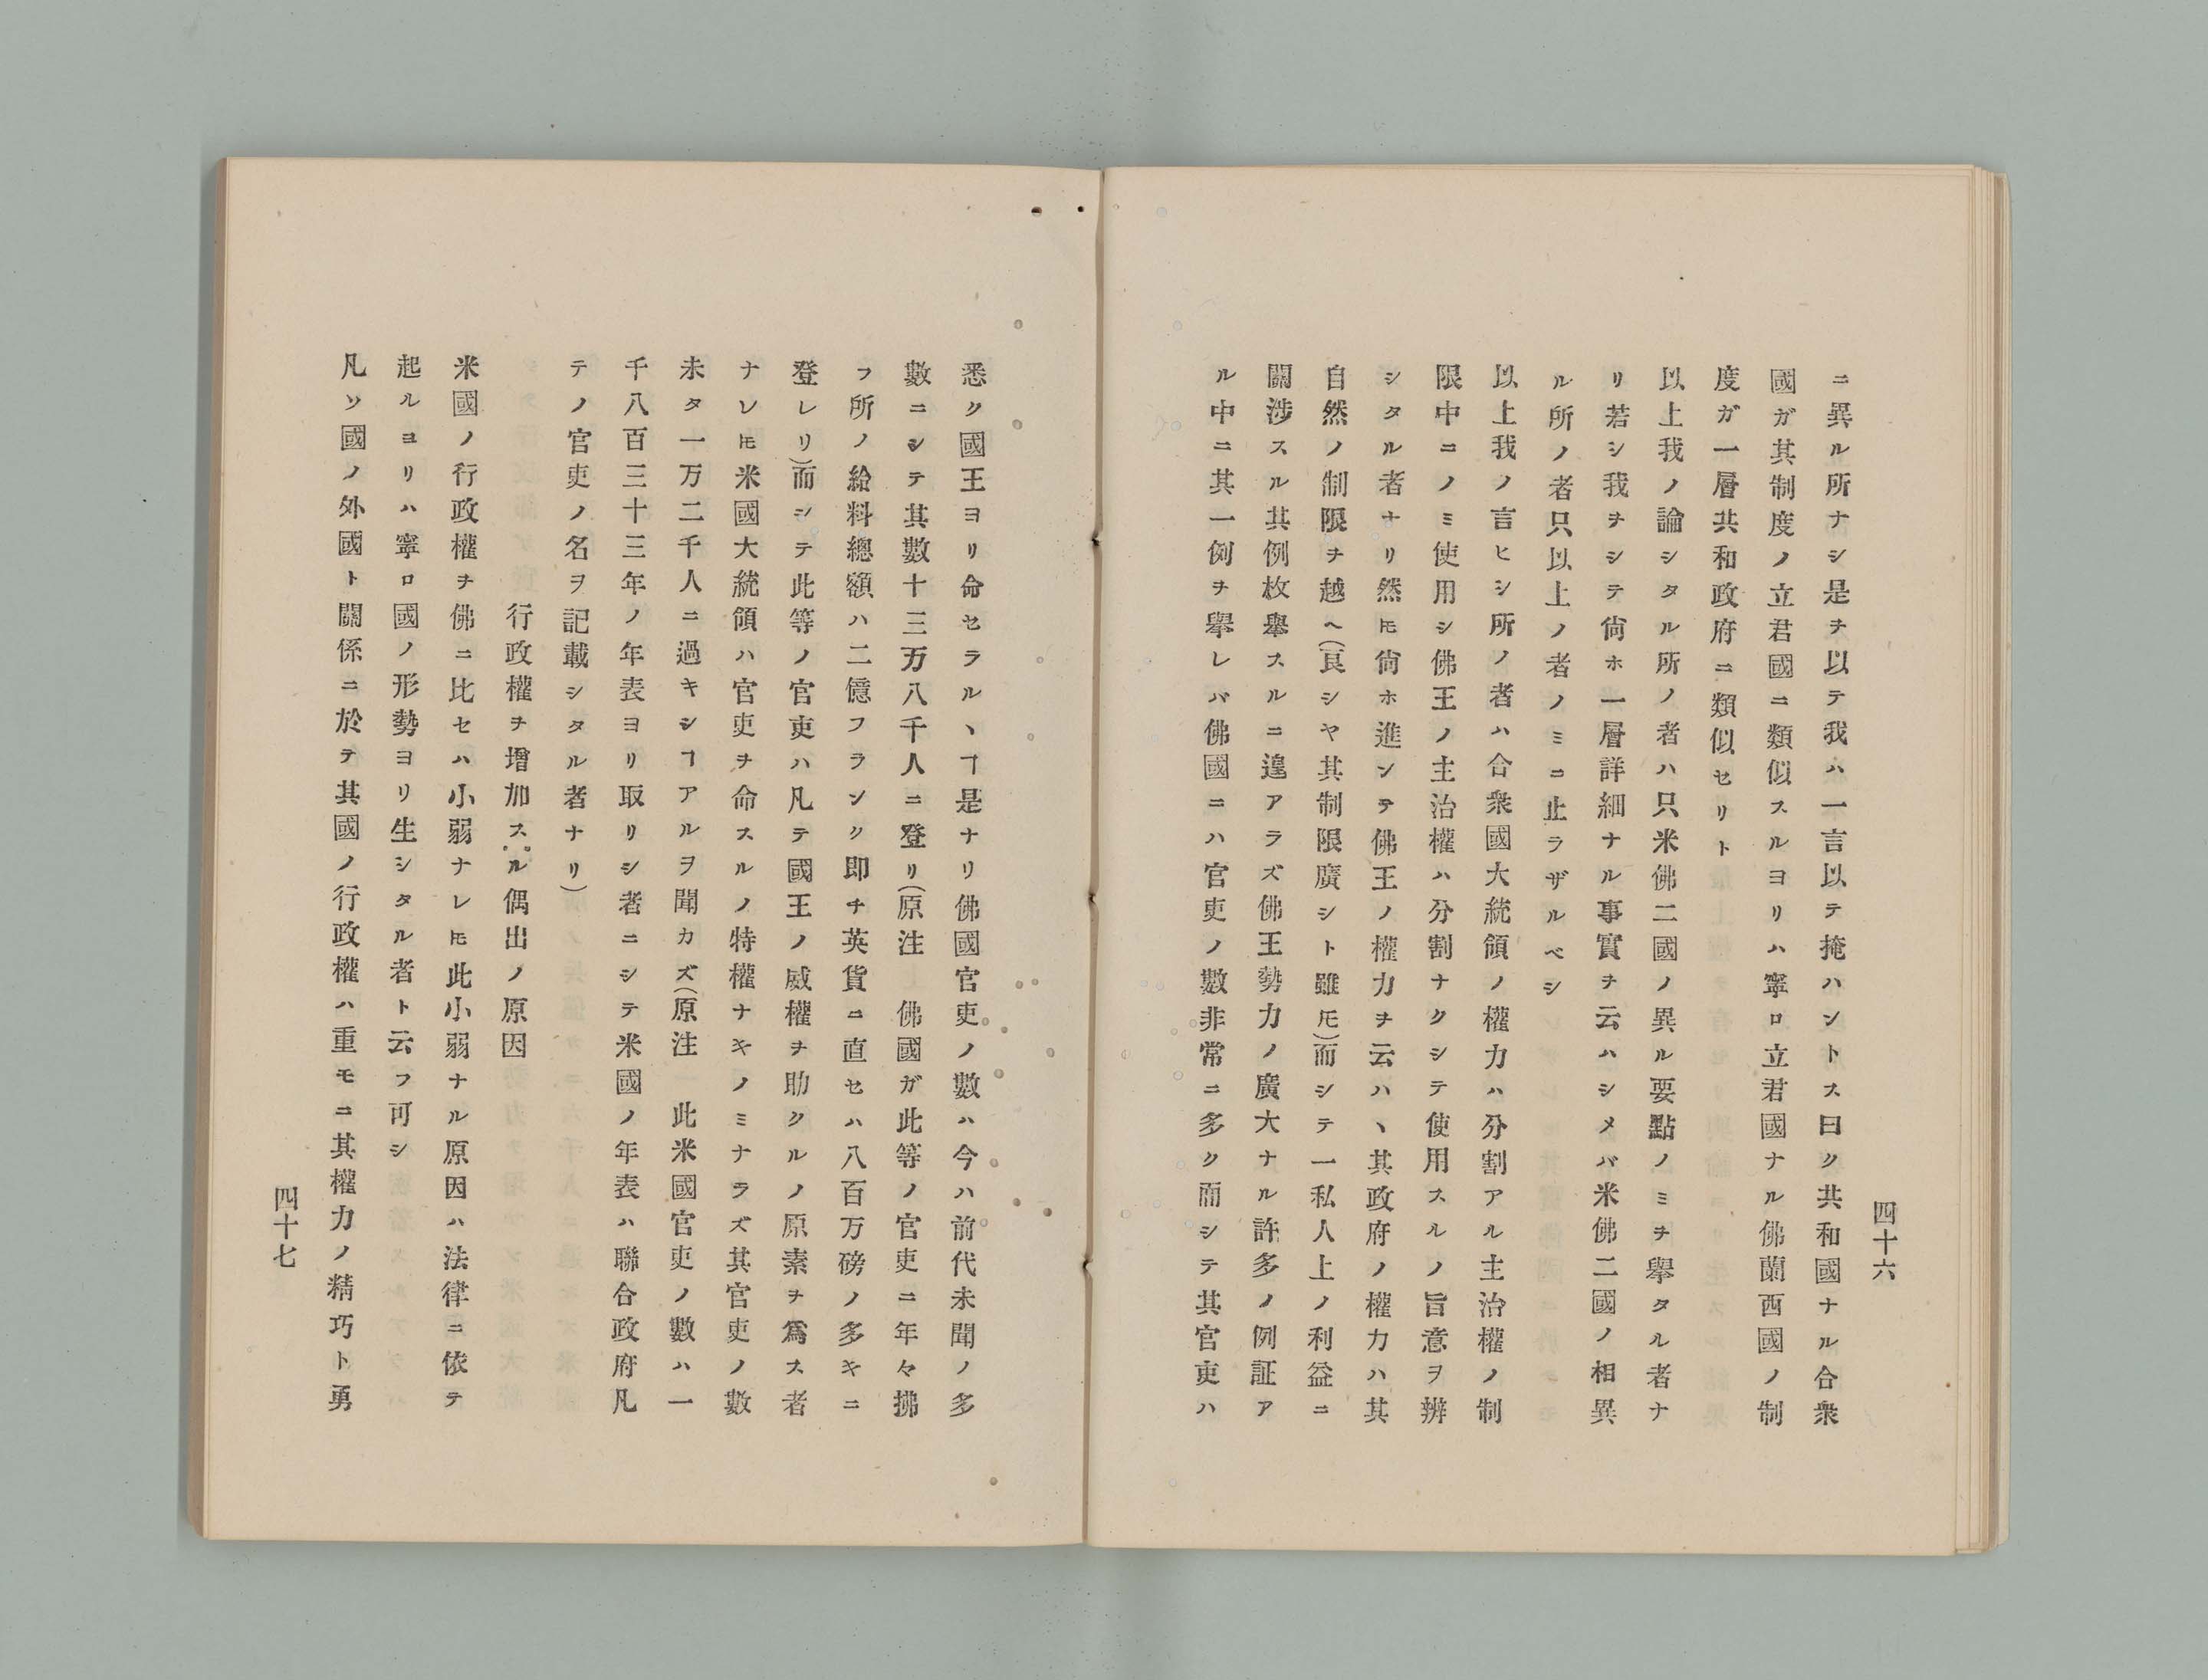 ニ異ル所ナシ是ヲ以テ我ハ一言以テ掩ハントス曰ク共和國ナル合衆
國ガ其制度ノ立君國ニ類似スルヨリハ寧ロ立君國ナル佛蘭西國ノ制
度ガ一層共和政府ニ類似セリト
以上我ノ論シタル所ノ者ハ只米佛二國ノ異ル要點ノミヲ擧タル者ナ
リ若シ我ヲシテ尙ホ一層詳細ナル事實ヲ云ハシメバ米佛二國ノ相異
ル所ノ者只以上ノ者ノミニ止ラザルベシ
以上我ノ言ヒシ所ノ者ハ合衆國大統領ノ權力ハ分割アル主治權ノ制
限中ニノミ使用シ佛王ノ主治權ハ分割ナクシテ使用スルノ旨意ヲ辨
シタル者ナリ然𪜈尙ホ進ンテ佛王ノ權力ヲ云ハヽ其政府ノ權力ハ其
自然ノ制限ヲ越ヘ(良シヤ其制限廣シト雖𪜈)而シテ一私人上ノ利益ニ
關涉スル其例枚擧スルニ遑アラズ佛王勢力ノ廣大ナル許多ノ例証ア
ル中ニ其一例ヲ擧レバ佛國ニハ官吏ノ數非常ニ多ク而シテ其官吏ハ
四十六
悉ク國王ヨリ命セラルヽヿ是ナリ佛國官吏ノ數ハ今ハ前代未聞ノ多
數ニシテ其數十三万八千人ニ登リ(原注　佛國ガ此等ノ官吏ニ年々拂
フ所ノ給料總額ハ二億フランク即チ英貨ニ直セハ八百万磅ノ多キニ
登レリ)而シテ此等ノ官吏ハ凡テ國王ノ威權ヲ助クルノ原素ヲ爲ス者
ナレ𪜈米國大統領ハ官吏ヲ命スルノ特權ナキノミナラズ其官吏ノ數
未タ一万二千人ニ過キシヿアルヲ聞カズ(原注　此米國官吏ノ數ハ一
千八百三十三年ノ年表ヨリ取リシ者ニシテ米國ノ年表ハ聯合政府凡
テノ官吏ノ名ヲ記載シタル者ナリ)
行政權ヲ增加スル偶出ノ原因
米國ノ行政權ヲ佛ニ比セハ小弱ナレ𪜈此小弱ナル原因ハ法律ニ依テ
起ルヨリハ寧ロ國ノ形勢ヨリ生シタル者ト云フ可シ
凡ソ國ノ外國ト關係ニ於テ其國ノ行政權ハ重モニ其權力ノ精巧ト勇
四十七